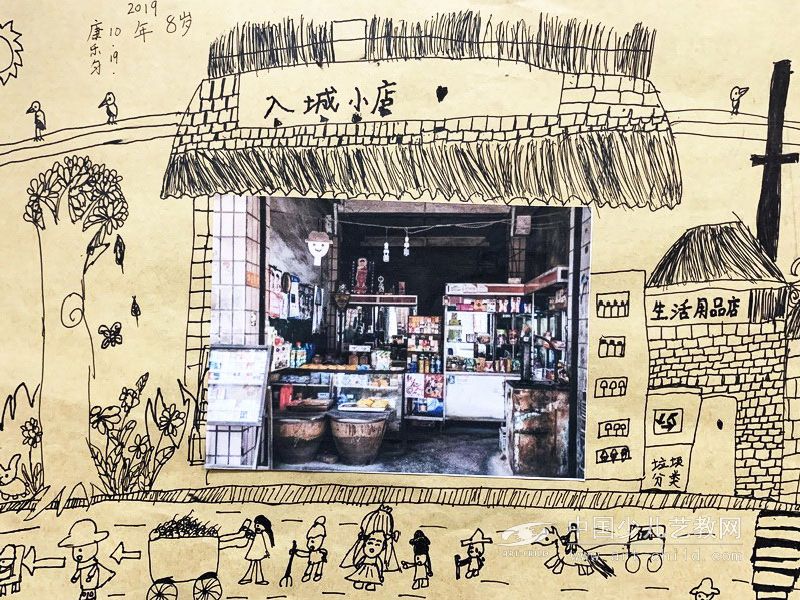 2019
年 8岁
10.19.
康乐匀
入城小店
生活用品店
垃圾
分类
中国少儿艺教网
ART-CHILD
www.art-child.com